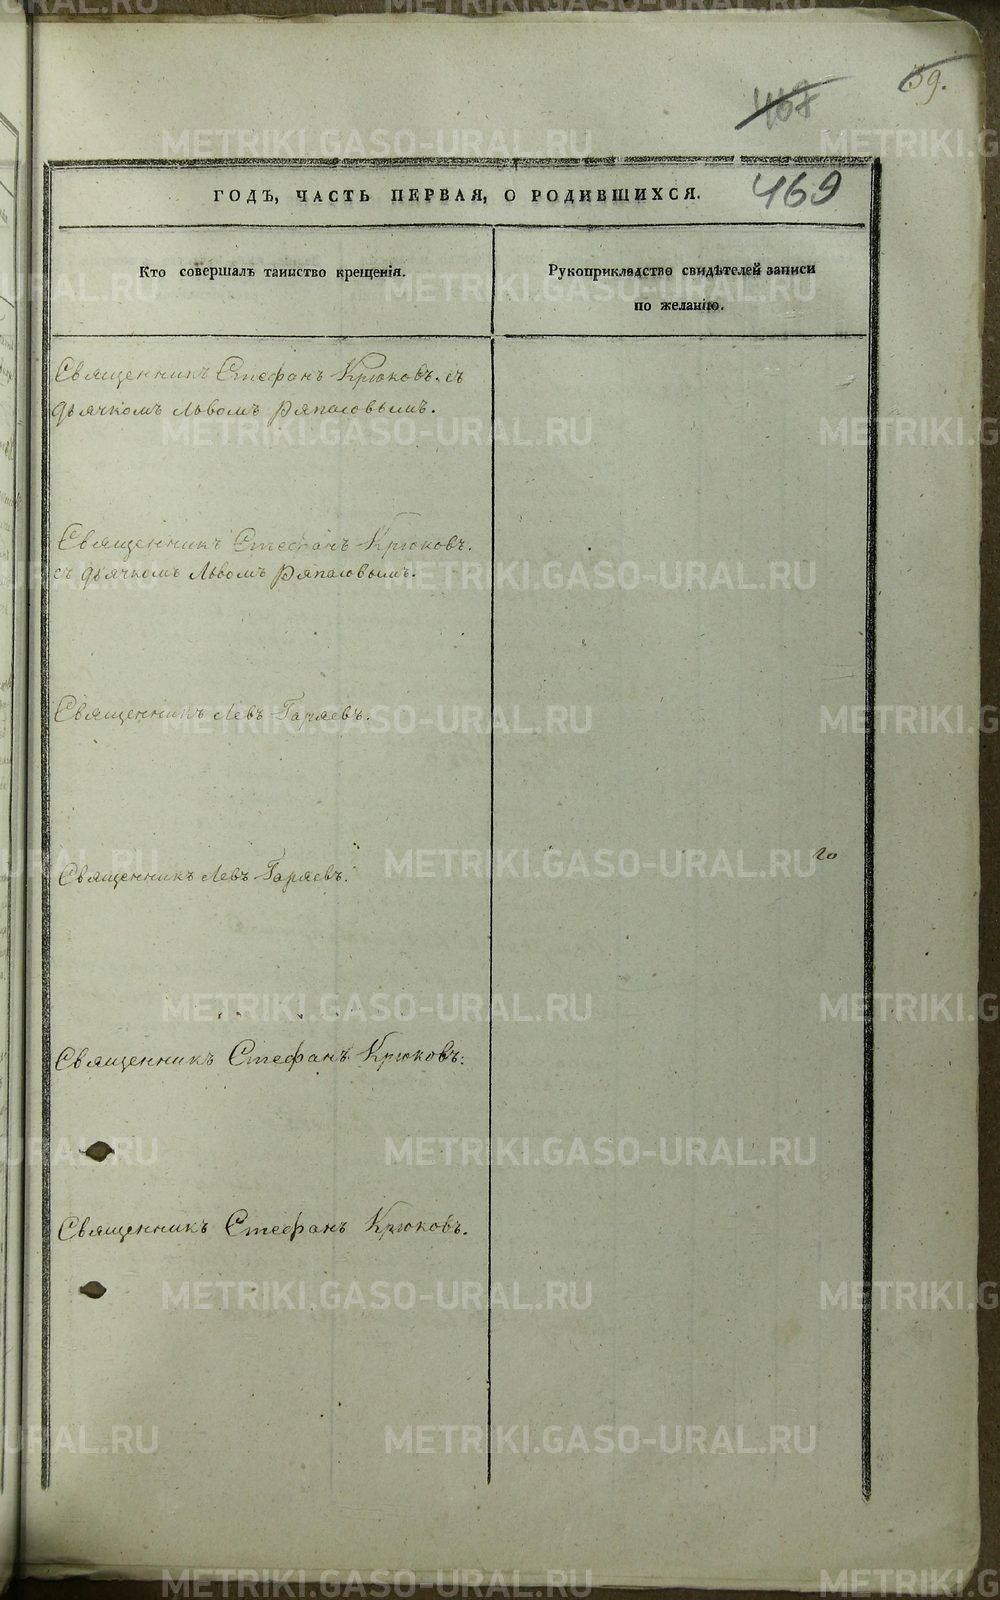 39.
468
469
ГОДЪ, ЧАСТЬ ПЕРВАЯ, О РОДИВШИХСЯ.
Кто совершалъ таинство крещенія.
Рукоприкладство свидѣтелей записи
по желанію.
Священникъ Стефанъ Крюковъ. съ
дьячкомъ Львомъ Ряпасовымъ.
Священникъ Стефанъ Крюковъ.
съ дьячкомъ Львомъ Ряпасовымъ.
Священникъ Левъ Гаряевъ.
Священникъ Левъ Гаряевъ.
го
Священникъ Стефанъ Крюковъ.
Священникъ Стефанъ Крюковъ.
METRIKI.GASO-URAL.RU